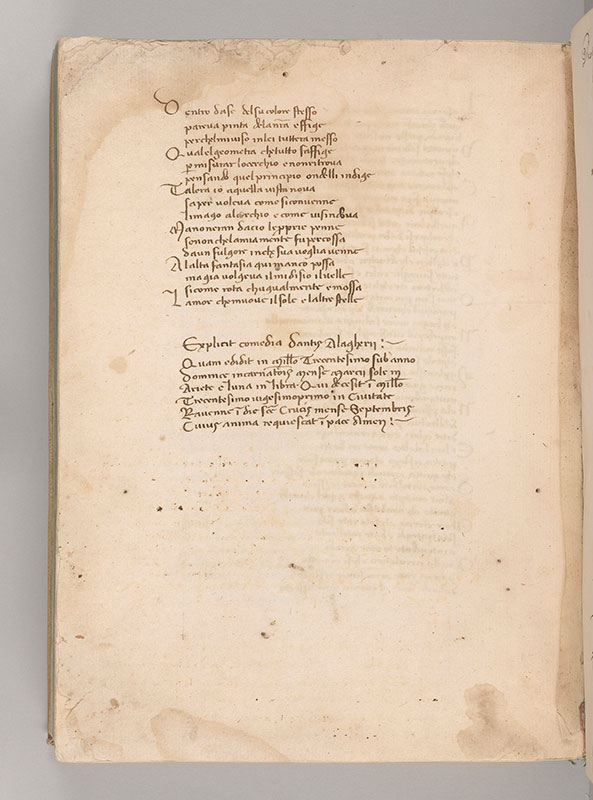 Dentro dase delsu colore stesso
pareva pinta dela nr̄a effige
perchelmiviso inlei tuttera messo
Qualel geometra chetutto saffige
p misurar locerchio enonritrova
pensando quel principio ondelli indige
Talera io aquella vista nova
saper voleva come siconvenne
limago alcerchio e come visindova
Manoneran dacio leprprie penne
senonchelamia mente fu percossa
daun fulgore inche sua voglia venne
Alalta fantasia qui manco possa
ma gia volgeva il mi disio il velle
si come rota chugualmente e mossa
Lamor chemuove il sole e laltre stelle
Explicit comedia dantis Alagherii :~
Quam edidit in Millo Trecentesimo sub anno
dominice incarnatiōis Mense Marcii sole in
Ariete e luna in libra. Qui decesit ī Millo
Trecentesimo vigesimoprimo in Civitate
Ravenne ī die sce Crucis mense Septembris
Cuius anima requiescat ī pace Amen :~